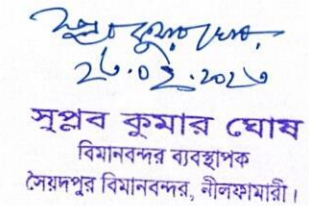 ২৬.০২.২০২৩
সুপ্লব কুমার ঘোষ
বিমানবন্দর ব্যবস্থাপক
সৈয়দপুর বিমানবন্দর, নীলফামারী।